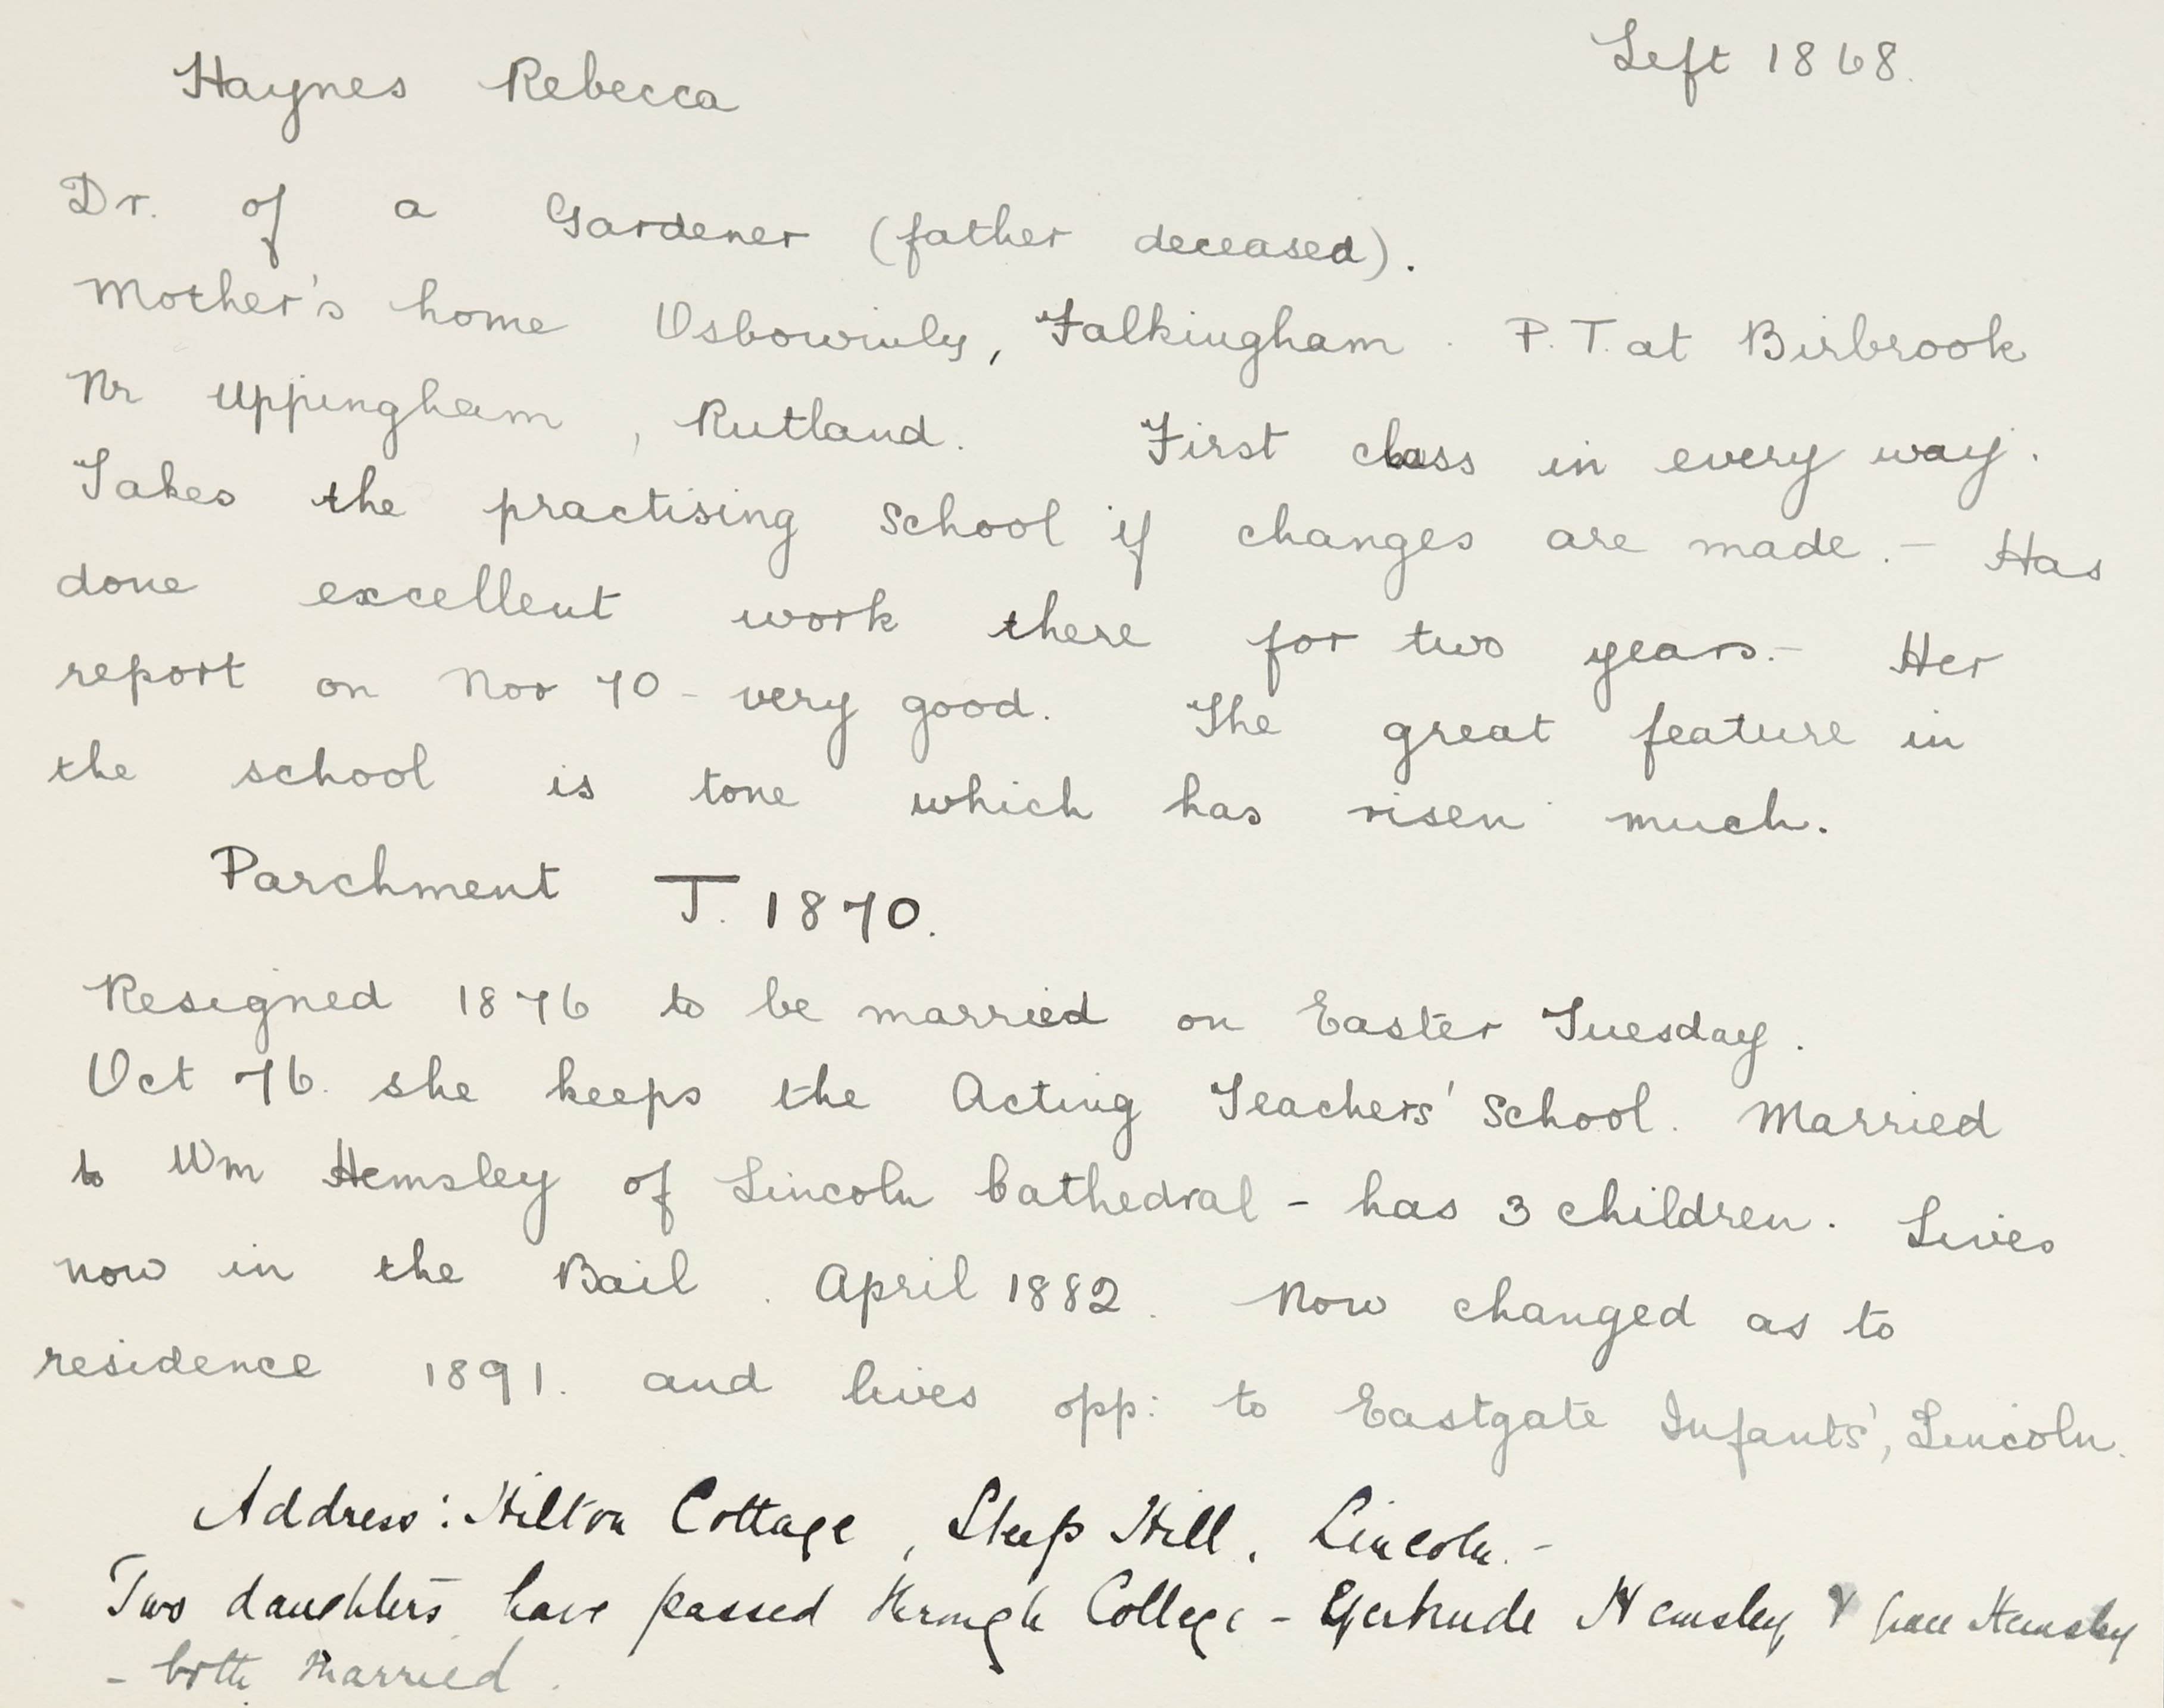 Haynes Rebecca Left 1868.
Dr. of a Gardener (father deceased).
Mother's home Osbowinly, Falkingham. P.T. at Birbrook
Nr Uppingham, Rutland. First class in every way.
Takes the practising school if changes are made. - Has
done excellent work there for two years. - Her
report on Nov 70 - very good. The great feature in
the school is tone which has risen much.
Parchment T. 1870.
Resigned 1876 to be married on Easter Tuesday.
Oct 76. she keeps the Acting Teachers' School. Married
to Wm Hemsley of Lincoln Cathedral - has 3 children. Lives
now in the Bail. April 1882. Now changed as to
residence 1891. and lives opp: to Eastgate Infants', Lincoln.
Address: Hilton Cottage, Steep Hill, Lincoln. -
Two daughters have passed through College - Gertrude Hemsley & Hemsley
- both married.